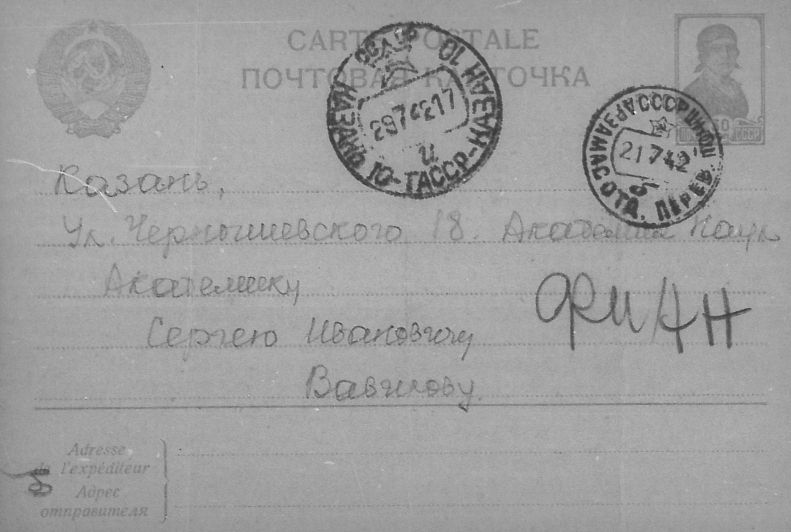 CARTE POSTALE
ПОЧТОВАЯ КАРТОЧКА
КАЗАНЬ 10-ТАССР-КАЗАНЬ 10
29 7 42 17
АРЗАМАС ОТД. ПЕРЕВ.
21 7 42
СССР
Казань,
Ул. Чернышевского 18. Академия Наук
Академику
ФИАН
Сергею Ивановичу
Вавилову.
Adresse
de l'expéditeur
Адрес
отправителя